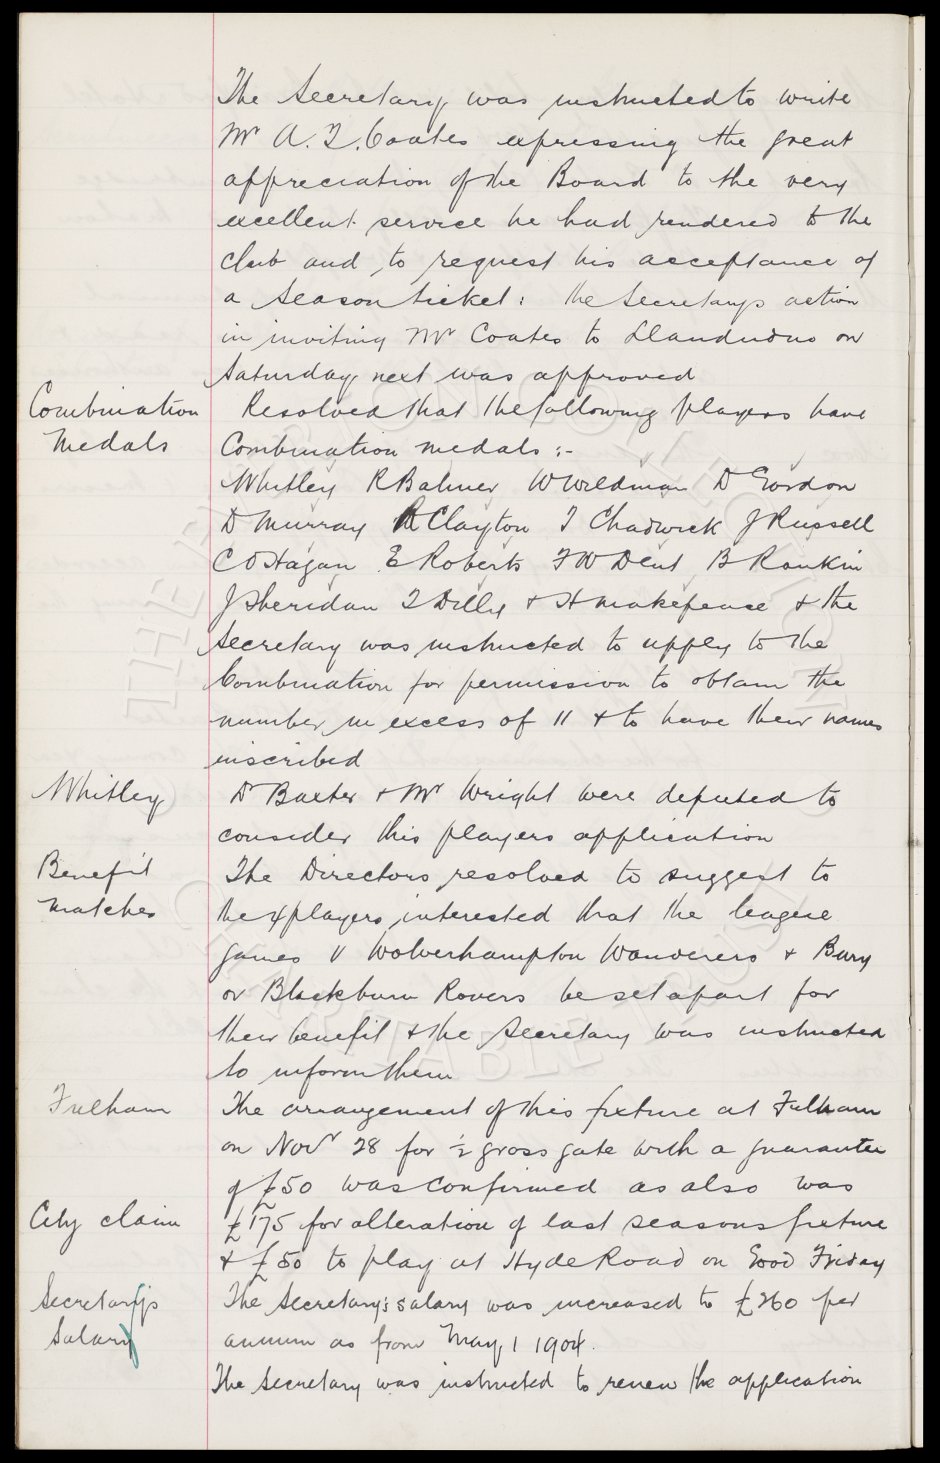 The Secretary was instructed to write
Mr A. T. Coates expressing the great
appreciation of the Board to the very
excellent service he had rendered to the
club and to request his acceptance of
a Season ticket: the Secretarys action
in inviting Mr Coates to Llandudno on
Saturday next was approved
Combination Medals
Resolved that the following players have
Combination medals :-
Whitley R Balmer W Wildman D Gordon
D Murray R Clayton T Chadwick J Russell
C O'Hagan E Roberts F W Dent B Rankin
J Sheridan T Dilly & H Makepeace & the
Secretary was instructed to apply to the
Combination for permission to obtain the
number in excess of 11 & to have their names
inscribed
Whitley
Dr Baxter & Mr Wright were deputed to
consider this players application
Benefit Matches
The Directors resolved to suggest to
the 4 players interested that the league
games V Wolverhampton Wanderers & Bury
or Blackburn Rovers be set apart for
their benefit & the Secretary was instructed
to inform them
Fulham
The arrangement of this fixture at Fulham
on Novr 28 for ½ gross gate with a guarantee
of £50 was confirmed as also was
City claim
£175 for alteration of last seasons fixture
& £50 to play at Hyde Road on Good Friday
Secretary's Salary
The Secretary's salary was increased to £260 per
annum as from May 1 1904.
The Secretary was instructed to renew the application